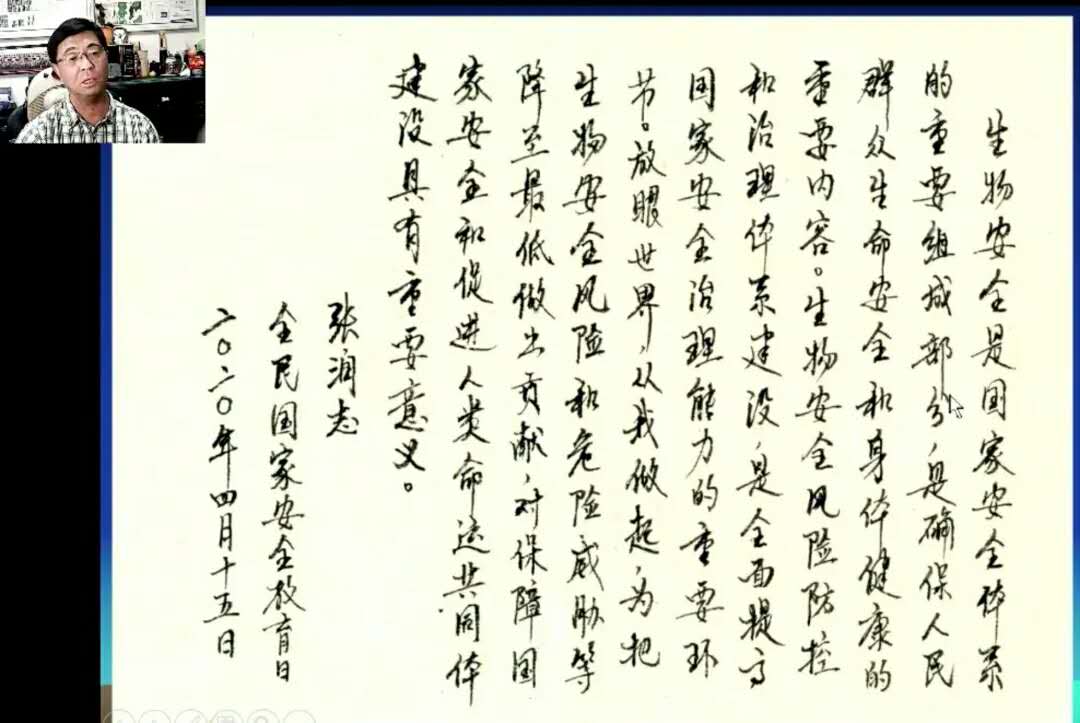 生物安全是国家安全体系
的重要组成部分，是确保人民
群众生命安全和身体健康的
重要内容。生物安全风险防控
和治理体系建设，是全面提高
国家安全治理能力的重要环
节。放眼世界，从我做起，为把
生物安全风险和危险威胁等
降至最低做出贡献，对保障国
家安全和促进人类命运共同体
建设具有重要意义。
张润志
全民国家安全教育日
二〇二〇年四月十五日